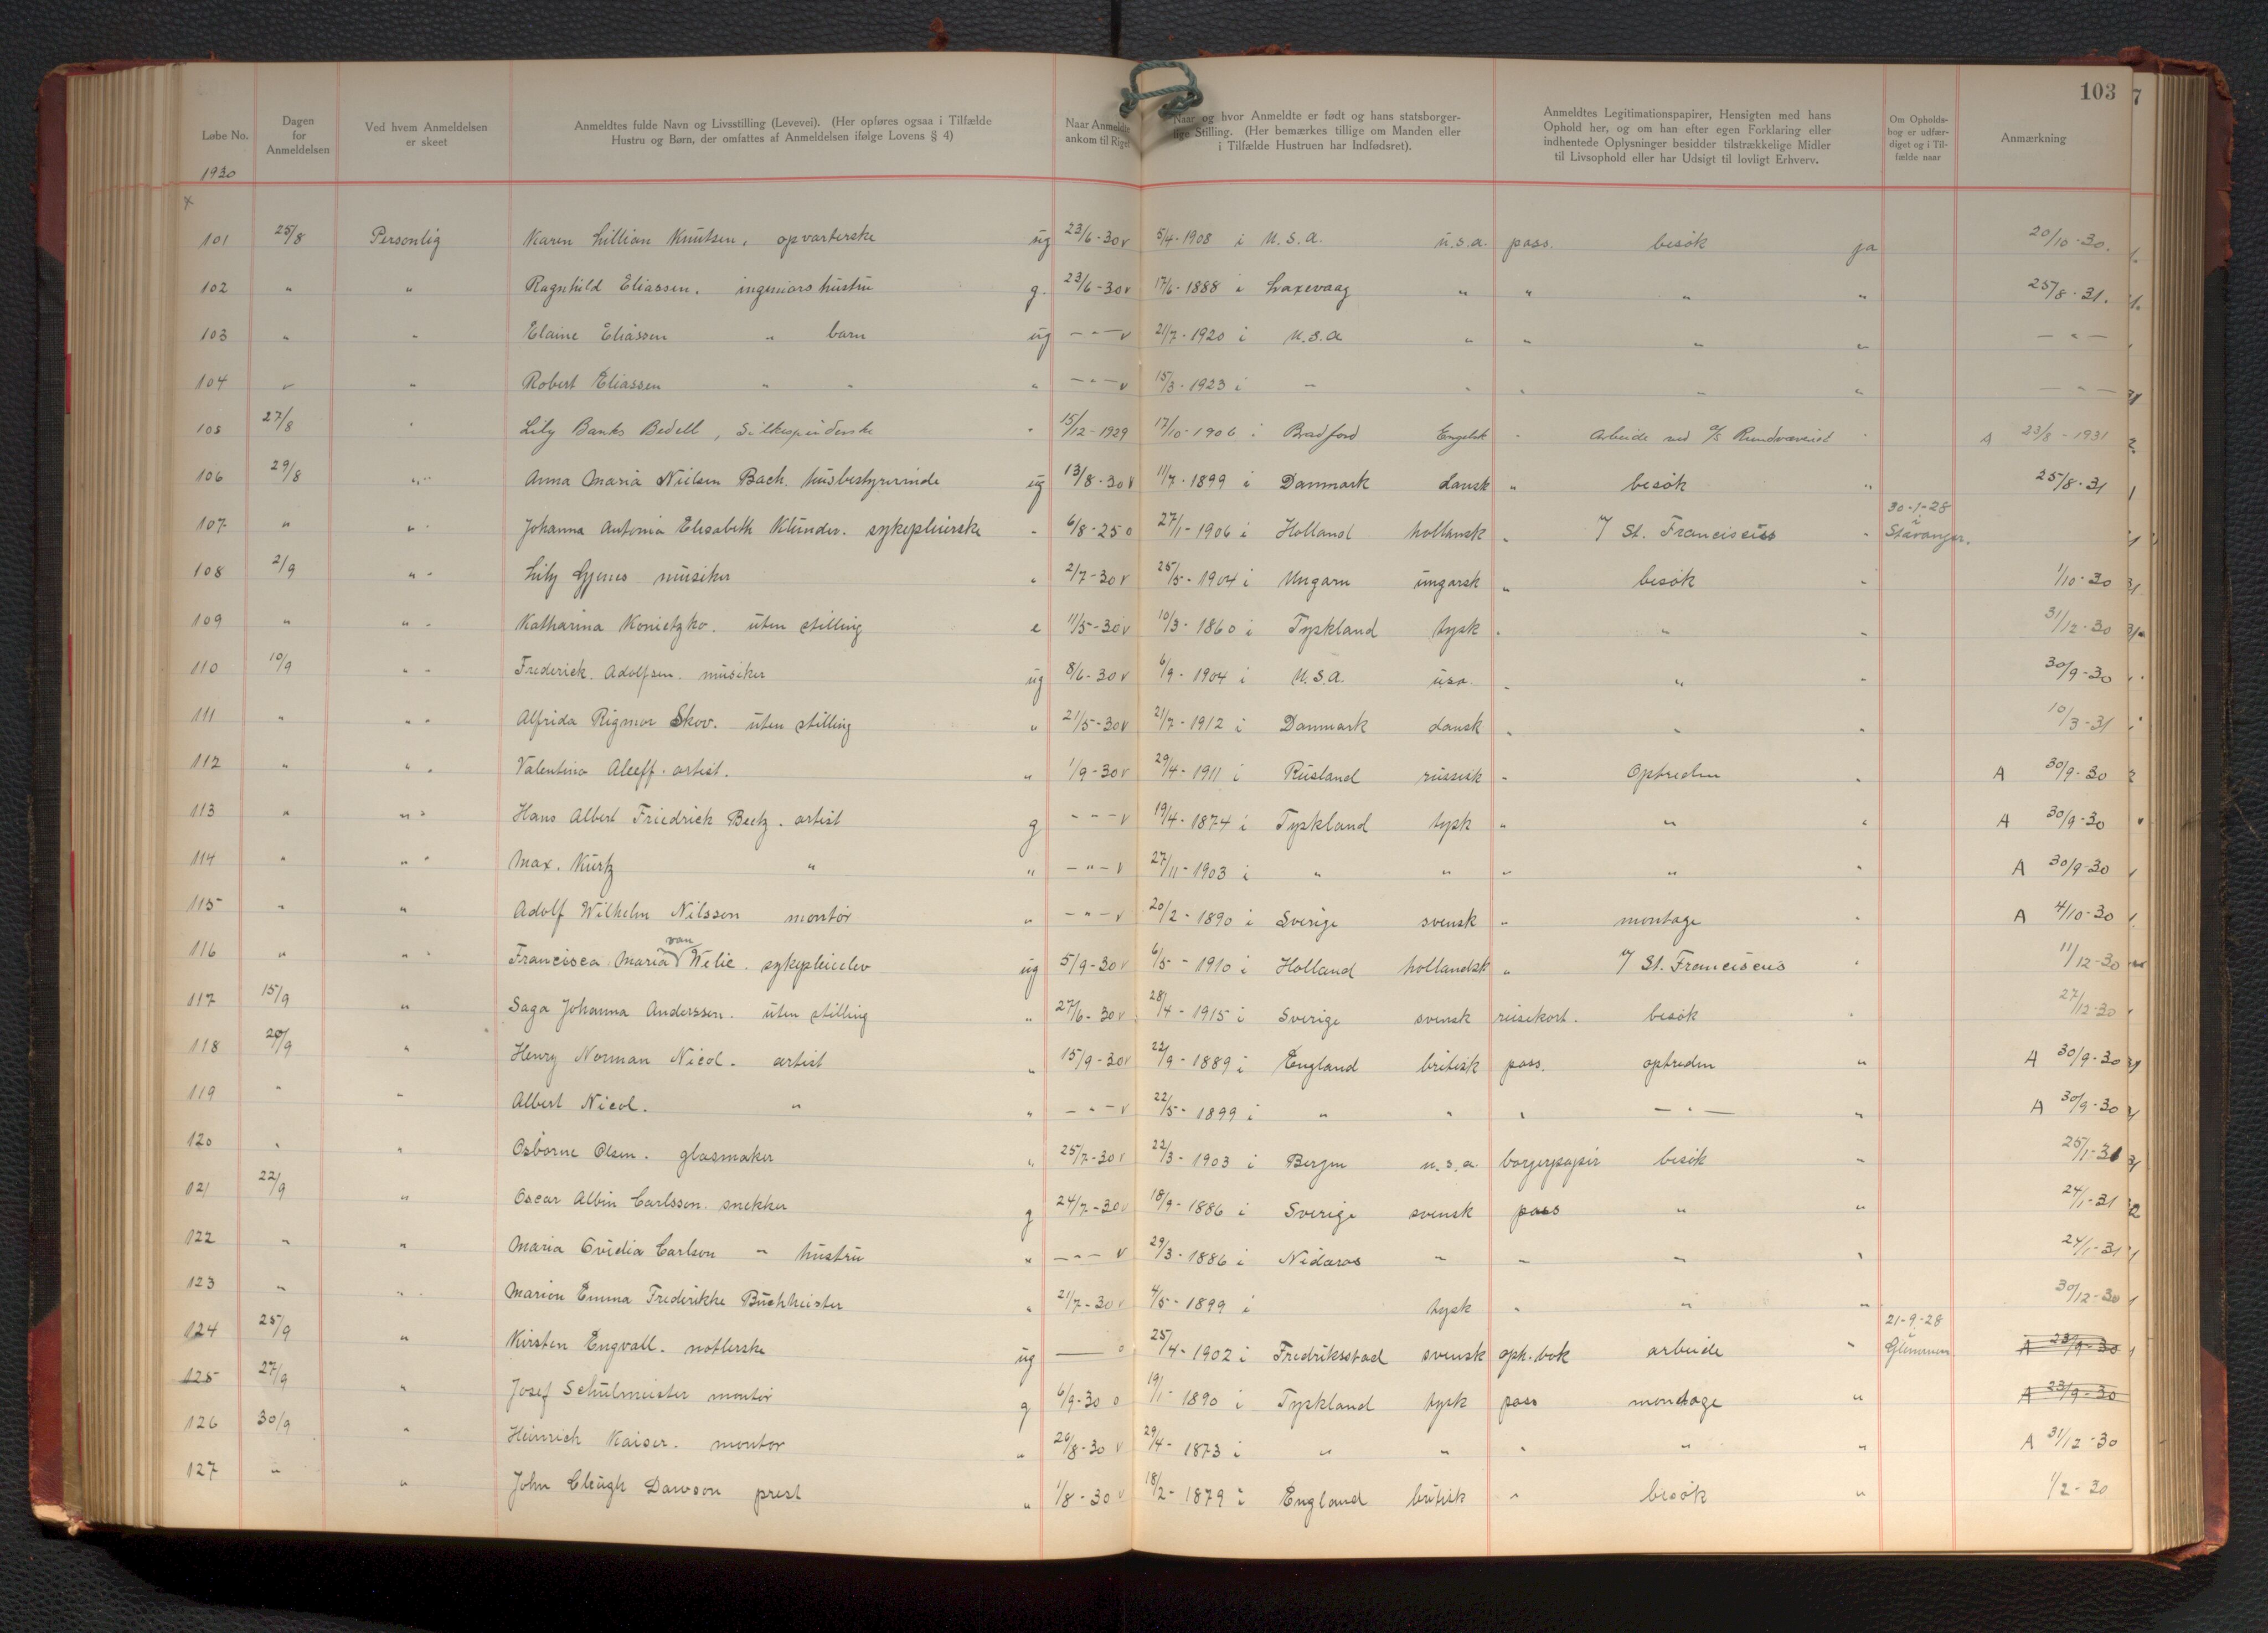 103
7
Løbe No.
Dagen for Anmeldelsen
Ved hvem Anmeldelsen er skeet
Anmeldtes fulde Navn og Livsstilling (Levevei). (Her opføres ogsaa i Tilfælde Hustru og Børn, der omfattes af Anmeldelsen ifølge Lovens § 4)
Naar Anmeldte ankom til Riget
Naar og hvor Anmeldte er født og hans statsborgerlige Stilling. (Her bemærkes tillige om Manden eller i Tilfælde Hustruen har Indfødsret).
Anmeldtes Legitimationspapirer, Hensigten med hans Ophold her, og om han efter egen Forklaring eller indhentede Oplysninger besidder tilstrækkelige Midler til Livsophold eller har Udsigt til lovligt Erhverv.
Om Opholdsbog er udfærdiget og i Tilfælde naar
Anmærkning
1930
x
101 25/8 Personlig Karen Lillian Knutsen, opvarterske ug 23/6-30 v 5/4-1908 i U.S.A. u.s.a. pass. besøk ja 20/10-30.
102 " " Ragnhild Eliassen. ingeniørs hustru g. 23/6-30 v 17/6-1888 i Laxevaag " " " " 25/8-31.
103 " " Elaine Eliassen " barn ug - " - v 21/7-1920 i U.S.A " " " " - " -
104 " " Robert Eliassen " " " - " - v 15/3-1923 i - " " " " - " -
105 27/8 " Lily Banks Bedell, Silkespinderske " 15/12-1929 17/10-1906 i Bradford Engelsk " Arbeide ved a/s " A 23/8-1931
106 29/8 " Anna Maria Nielsen Bach. husbestyrerinde ug 13/8-30 v 11/7-1899 i Danmark dansk " besøk " 25/8-31
107 " " Johanna Antonia Elisabeth Klünder. sykepleierske " 6/8-25 o 27/1-1906 i Holland hollansk " v/ St. Franciscus " 30-1-28 i Stavanger.
108 2/9 " Lily musiker " 2/7-30 v 25/5-1904 i Ungarn ungarsk " besøk " 1/10-30
109 " " Katharina Konietzko. uten stilling e 11/5-30 v 10/3-1860 i Tyskland tysk " " " 31/12-30
110 10/9 " Frederick. Adolfsen. musiker ug 8/6-30 v 6/9-1904 i U.S.A. usa. " " " 30/9-30
111 " " Alfrida Rigmor Skov. uten stilling " 21/5-30 v 21/7-1912 i Danmark dansk " " " 10/3-31
112 " " Valentino Aleeff. artist. " 1/9-30 v 29/4-1911 i Rusland russisk " Optreden " A 30/9-30
113 " " Hans Albert Friedrich Beetz. artist g - " - v 19/4-1874 i Tyskland tysk " " " A 30/9-30
114 " " Max. Kurtz " " - " - v 27/11-1903 i " " " " " A 30/9-30
115 " " Adolf Wilhelm Nilsson montør " - " - v 20/2-1890 i Sverige svensk " montage " A 4/10-30
116 " " Francisca Maria van Welie. sykepleieelev ug 5/9-30 v 6/5-1910 i Holland hollandsk " v/ St. Franciscus " 11/12-30
117 15/9 " Saga Johanna Anderssen. uten stilling " 27/6-30 v 28/4-1915 i Sverige svensk reisekort. besøk " 27/12-30
118 20/9 " Henry Norman Nicol. artist " 15/9-30 v 22/9-1889 i England britisk pass. optreden " A 30/9-30
119 " " Albert Nicol. " " - " - v 22/5-1899 i " " " - " - " A 30/9-30
120 " " Osborne Olsen. glasmaker " 25/7-30 v 22/3-1903 i Bergen u.s.a. borgerpapir besøk " 25/1-31
121 22/9 " Oscar Albin Carlsson. snekker g 24/7-30 v 18/9-1886 i Sverige svensk pass " " 24/1-31
122 " " Maria Ovidia Carlson " hustru " - " - v 29/3-1886 i Nidaros " " " " 24/1-31
123 " " Marion Emma Frederikke Buchheister " 21/7-30 v 4/5-1899 i tysk " " " 30/12-30
124 25/9 " Kirsten Engvall. notlerske ug — o 25/4-1902 i Fredriksstad svensk oph.bok arbeide " 21-9-28 i Glemmen A 23/9-30
125 27/9 " Josef Schulmeister montør g 6/9-30 o 19/1-1890 i Tyskland tysk pass mondage " A 23/9-30
126 30/9 " Heinrich Kaiser. montør " 26/8-30 v 29/4-1873 i " " " " " A 31/12-30
127 " " John Cleugh Dawson prest " 1/8-30 v 18/2-1879 i England britisk " besøk " 1/2-30